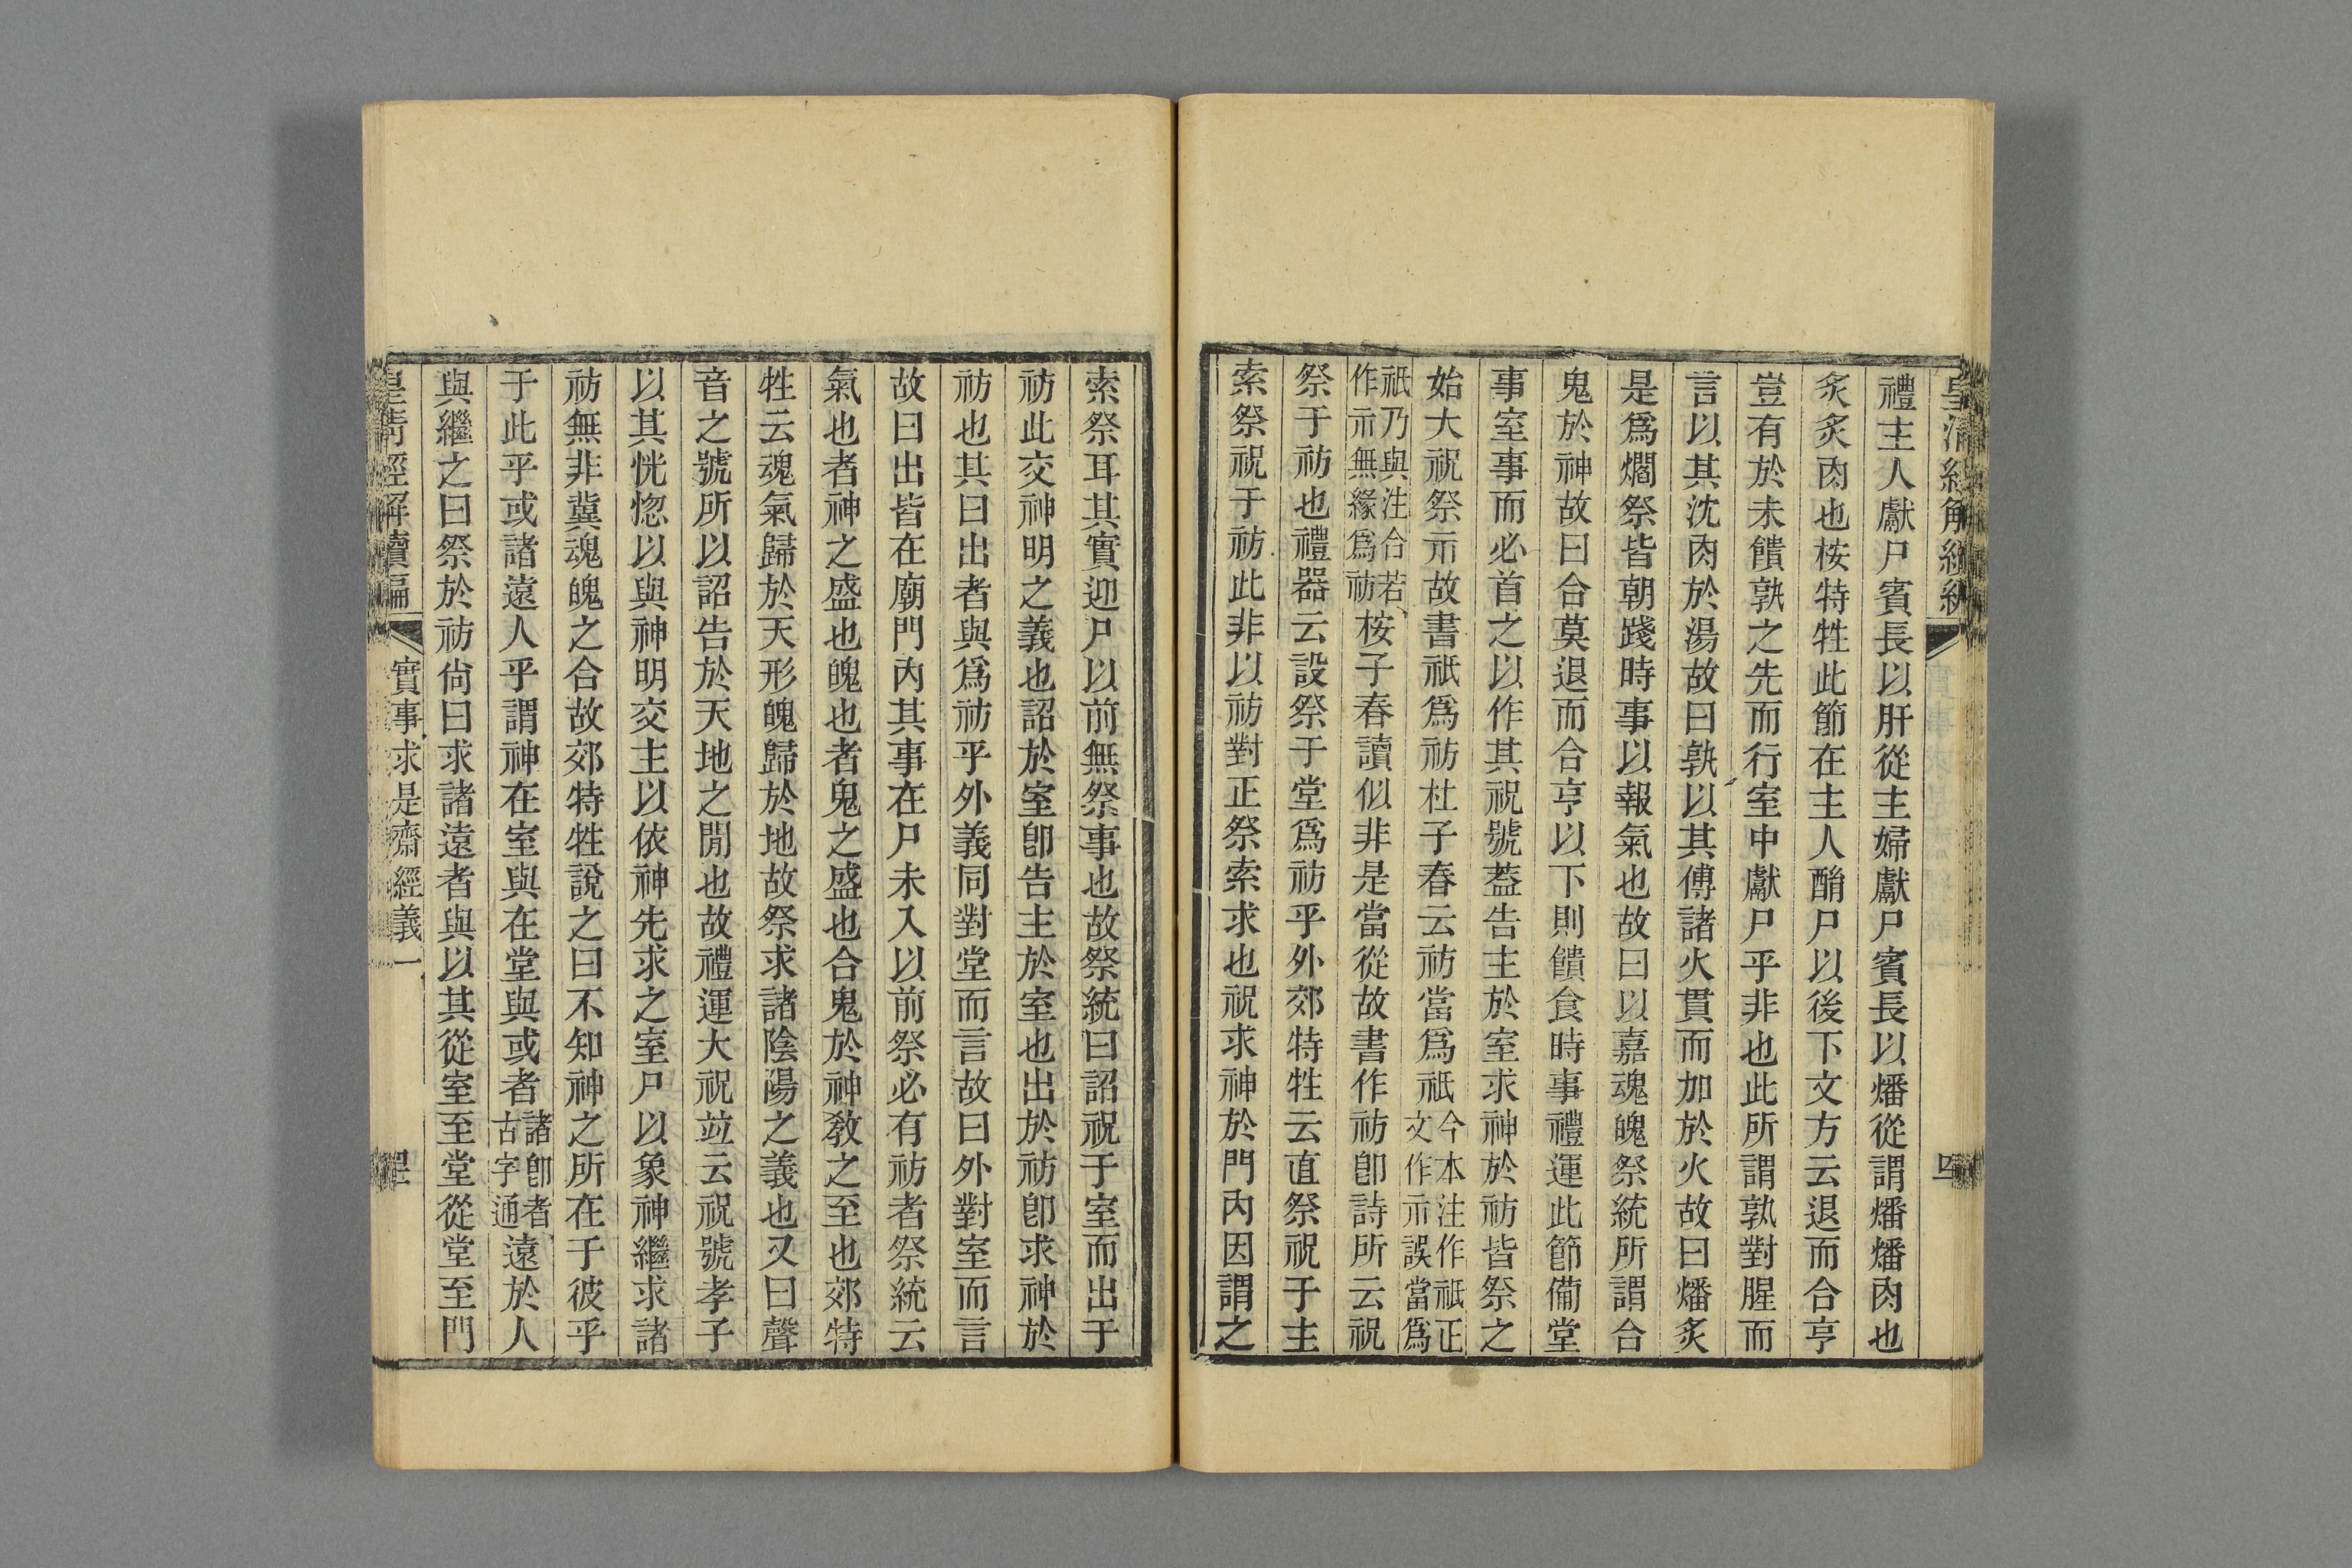 禮主人獻尸賓長以肝從主婦獻尸賓長以燔從謂燔燔肉也
炙炙肉也桉特牲此節在主人酳尸以後下文方云退而合亨
豈有於未饋孰之先而行室中獻尸乎非也此所謂孰對腥而
言以其沈肉於湯故曰孰以其傅諸火貫而加於火故曰燔炙
是爲爓祭皆朝踐時事以報氣也故曰以嘉魂魄祭統所謂合
鬼於神故曰合莫退而合亨以下則饋食時事禮運此節備堂
事室事而必首之以作其祝號葢告主於室求神於祊皆祭之
始大祝祭示故書祇爲祊杜子春云祊當爲祇今本注作祇正文作示誤當爲
祇乃與注合若作示無緣爲祊桉子春讀似非是當從故書作祊卽詩所云祝
祭于祊也禮器云設祭于堂爲祊乎外郊特牲云直祭祝于主
索祭祝于祊此非以祊對正祭索求也祝求神於門內因謂之
索祭耳其實迎尸以前無祭事也故祭統曰詔祝于室而出于
祊此交神明之義也詔於室卽告主於室也出於祊卽求神於
祊也其曰出者與爲祊乎外義同對堂而言故曰外對室而言
故曰出皆在廟門內其事在尸未入以前祭必有祊者祭統云
氣也者神之盛也魄也者鬼之盛也合鬼於神敎之至也郊特
牲云魂氣歸於天形魄歸於地故祭求諸陰陽之義也又曰聲
音之號所以詔告於天地之閒也故禮運大祝竝云祝號孝子
以其恍惚以與神明交主以依神先求之室尸以象神繼求諸
祊無非冀魂魄之合故郊特牲說之曰不知神之所在于彼乎
于此乎或諸遠人乎謂神在室與在堂與或者諸卽者古字通遠於人
與繼之曰祭於祊尙曰求諸遠者與以其從室至堂從堂至門
皇淸經解續編 實事求是齋經義一